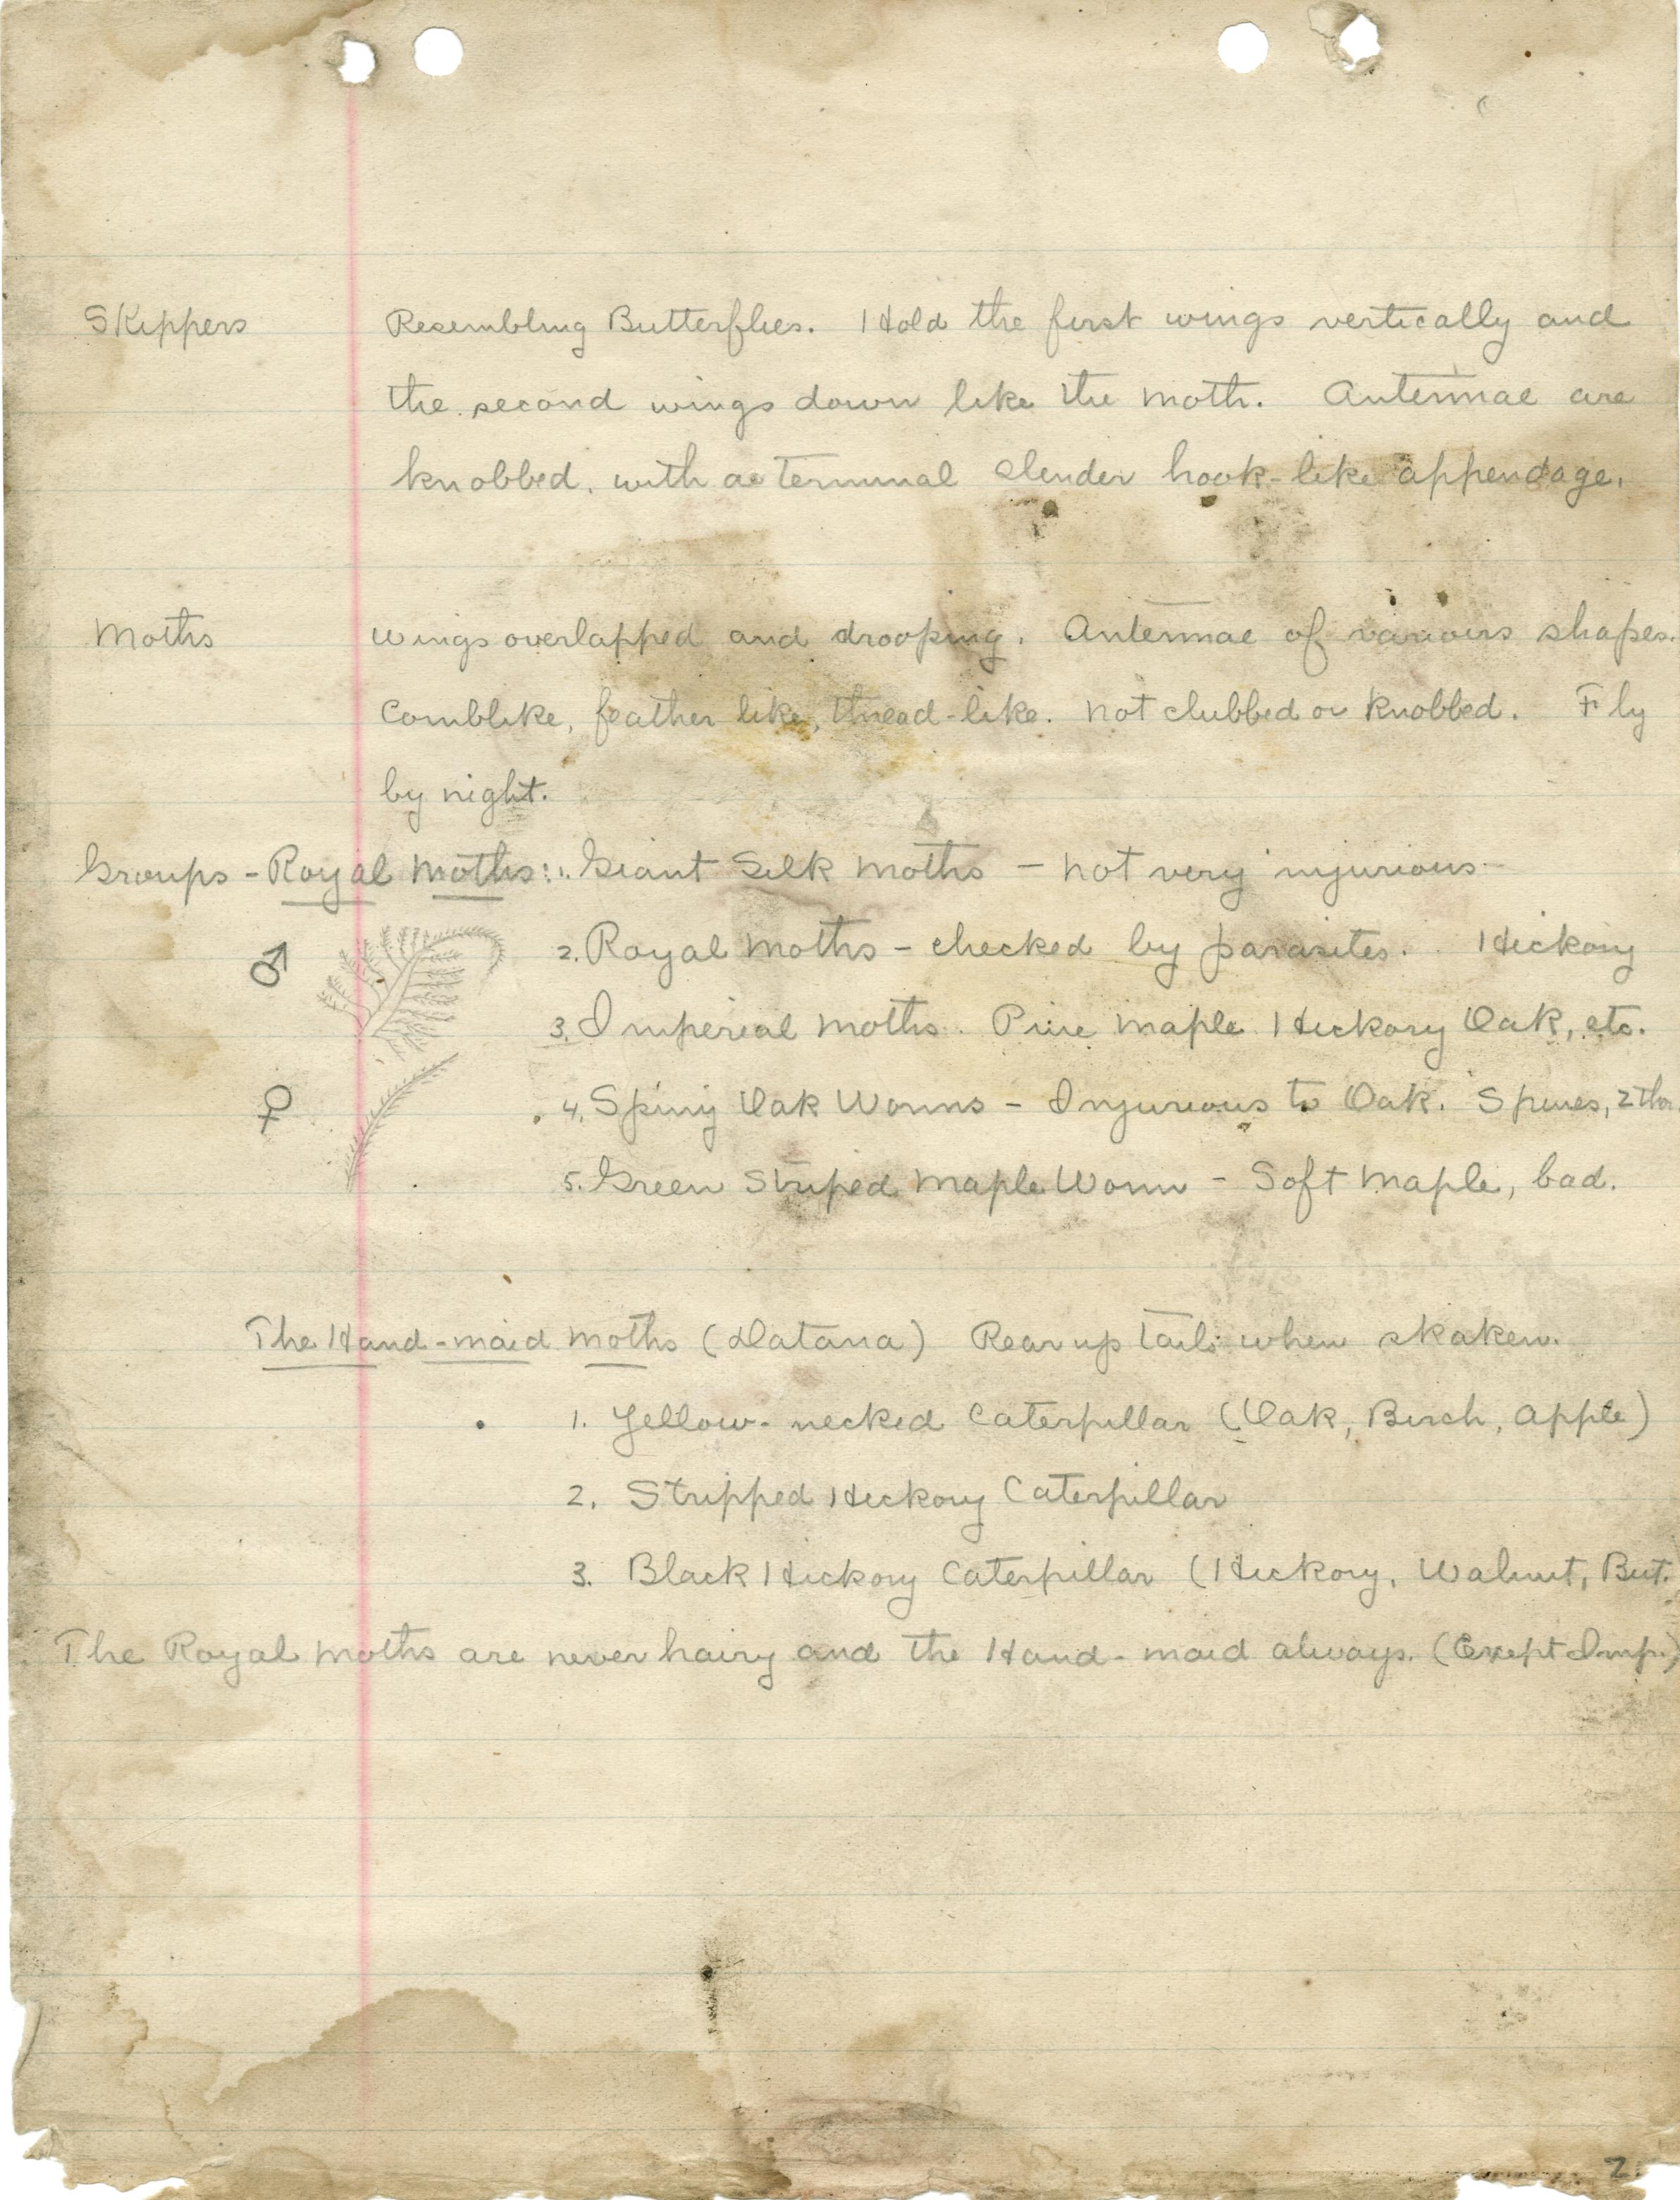 Skippers Resembling Butterflies. Hold the first wings vertically and
the second wings down like the moth. Antennae are
knobbed, with a terminal slender hook-like appendage.
Moths Wings overlapped and drooping. Antennae of various shapes.
Comblike, feather like, thread-like. Not clubbed or knobbed. Fly
by night.
Groups - Royal Moths: 1. Giant Silk Moths - not very injurious
♂ 2. Royal Moths - checked by parasites. Hickory
3. Imperial Moths. Pine Maple Hickory Oak, etc.
♀ 4. Spiny Oak Worms - Injurious to Oak. Spines, 2 thor.
5. Green Striped Maple Worm - Soft Maple, bad.
The Hand-maid Moths (Datana) Rear up tails when shaken.
1. Yellow-necked Caterpillar (Oak, Birch, Apple)
2. Stripped Hickory Caterpillar
3. Black Hickory Caterpillar (Hickory, Walnut, But.
The Royal Moths are never hairy and the Hand-maid always. (Exept Imp.)
2